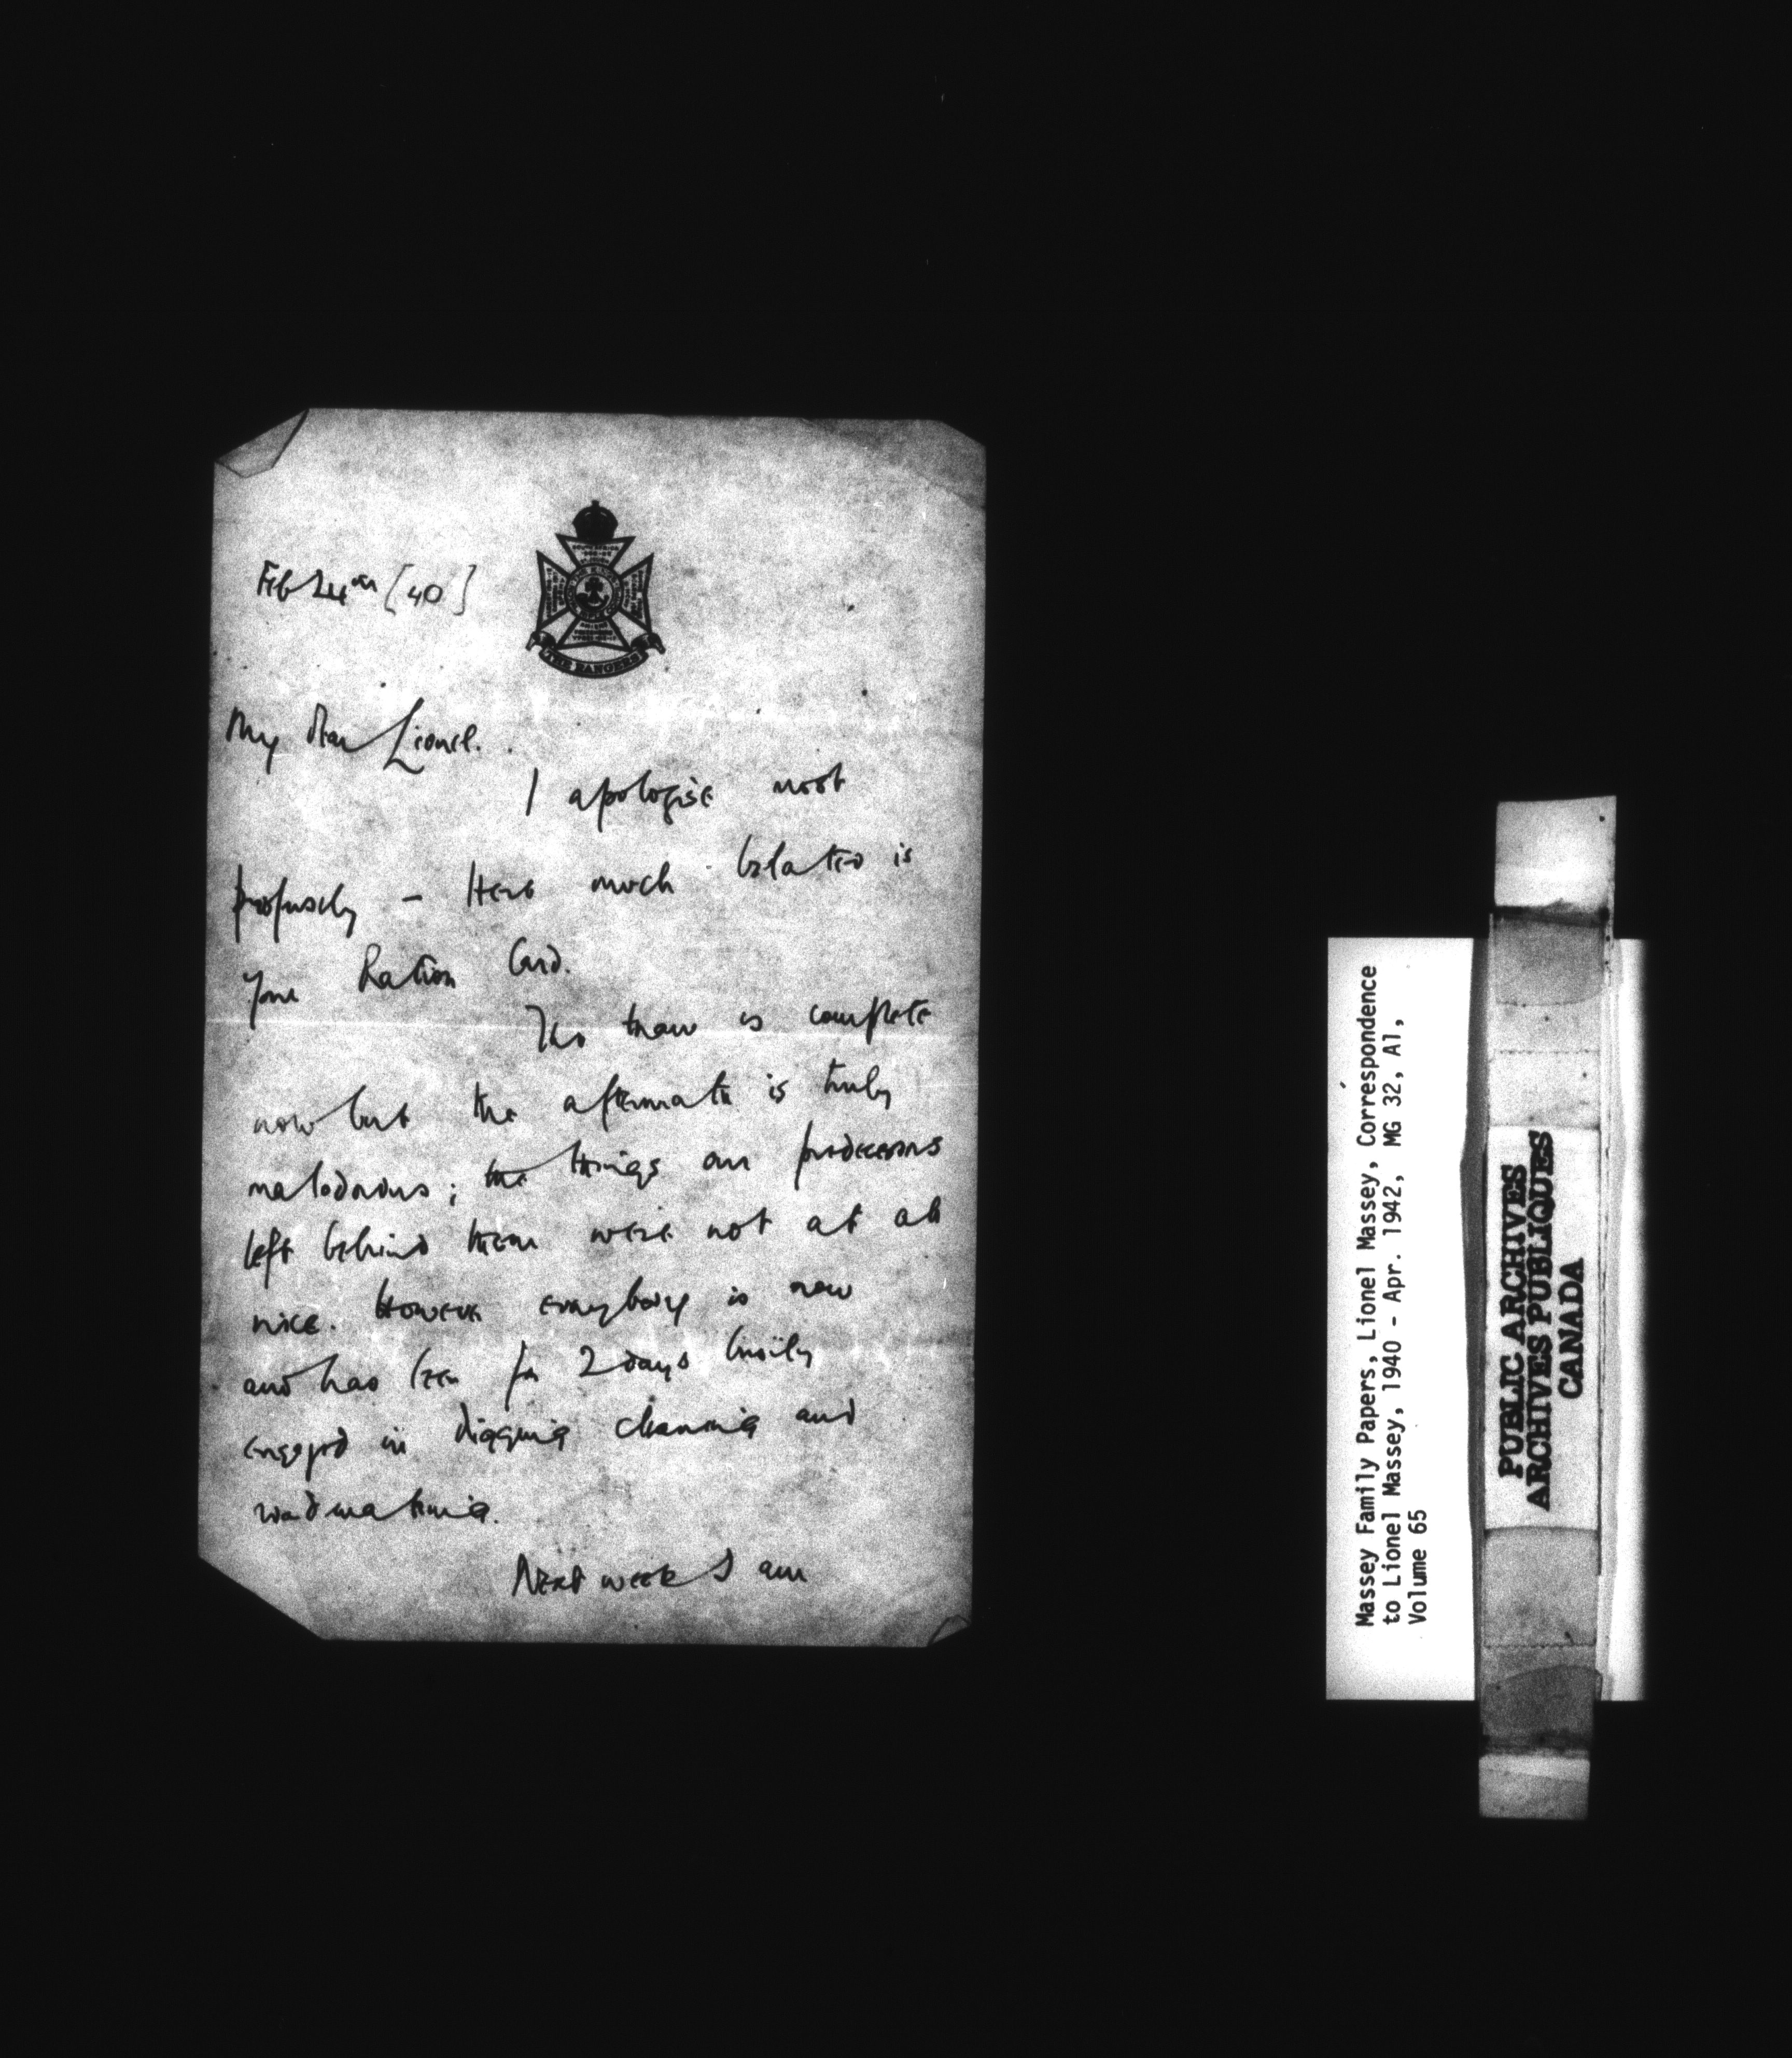 Feb 24th [40]
THE RANGERS
My dear Lionel.
I apologise most
profusely - Here much belated is
your Ration Card.
The thaw is complete
now but the aftermath is truly
malodorous; the things our predecessors
left behind them were not at all
nice. However everybody is now
and has been for 2 days busily
engaged in digging cleaning and
road making.
Next week I am
Massey Family Papers, Lionel Massey, Correspondence
to Lionel Massey, 1940 - Apr. 1942, MG 32, A1,
Volume 65
PUBLIC ARCHIVES
ARCHIVES PUBLIQUES
CANADA